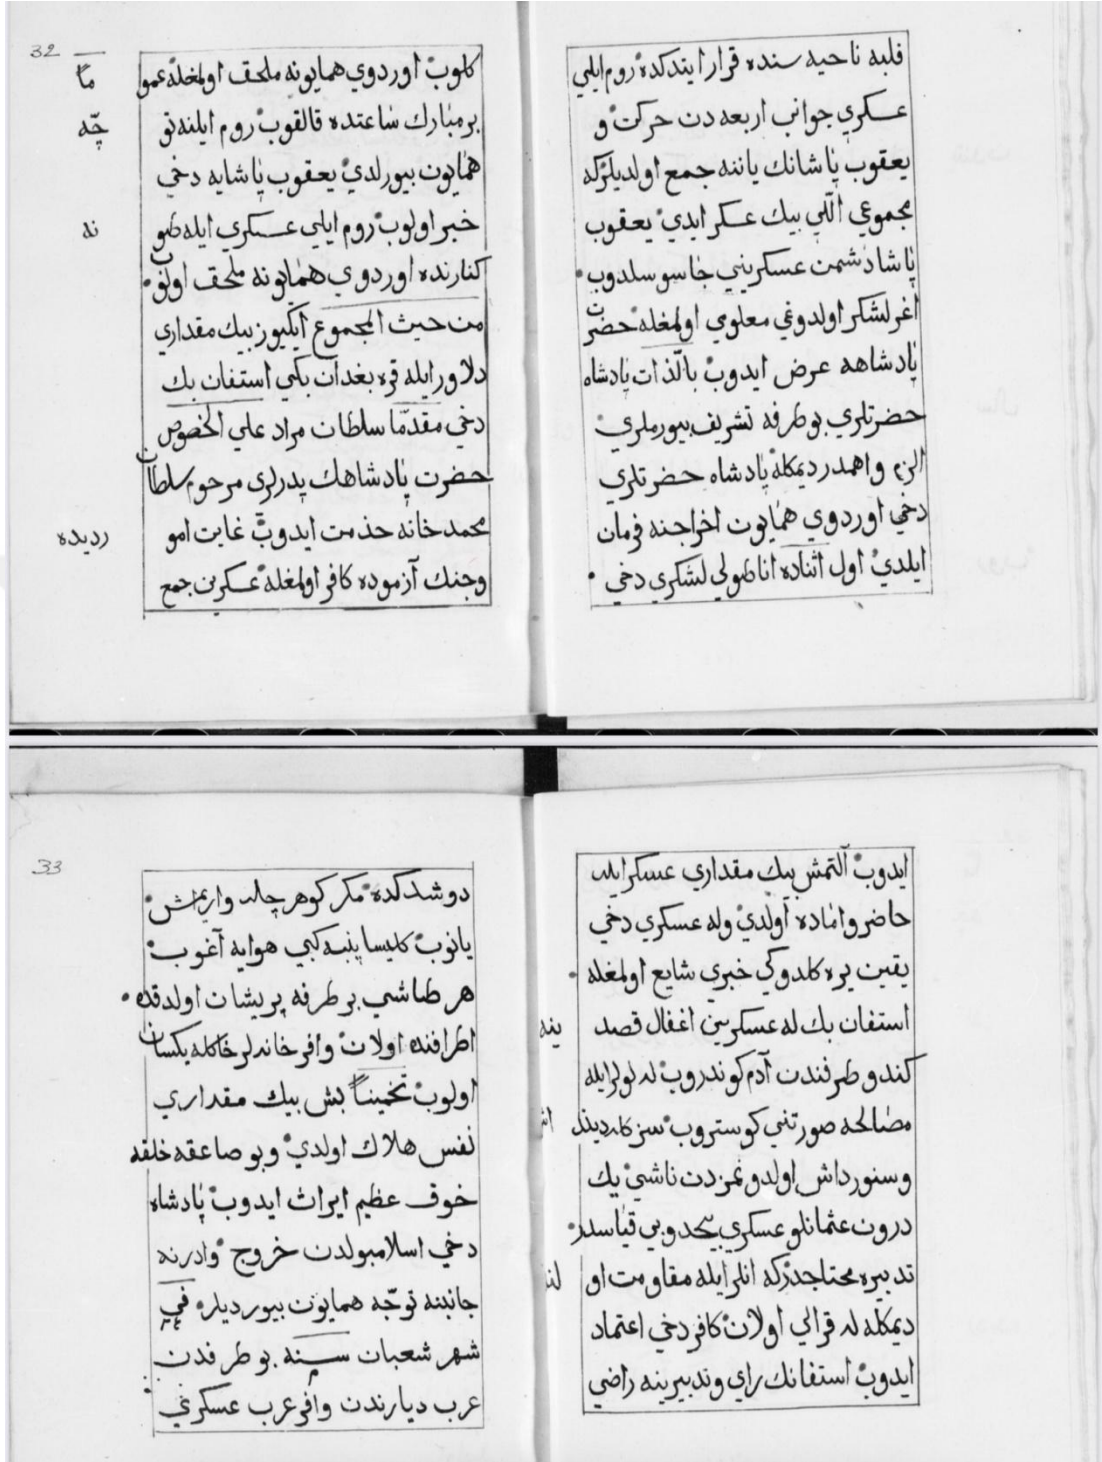 فلبه ناحيه سنده قرار ايتدكده روم ايلي
عسكري جوانب اربعه دن حركت و
يعقوب پاشانك ياننه جمع اولديلركه
مجموعي اللّي بيك عسكر ايدي يعقوب
پاشا دشمن عسكريني جاسوسلدوب
اغر لشكر اولدوغي معلومي اولمغله حضرت
پادشاهه عرض ايدوب بالّذات پادشاه
حضرتلري بو طرفه تشريف بيورملري
الزم و اهمدر ديمكله پادشاه حضرتلري
دخي اوردوي همايون اخراجنه فرمان
ايلدي اول اثناده اناطولي لشكري دخي
32
كلوب اوردوي همايونه ملحق اولمغله عمو
ماً
بر مبارك ساعتده قالقوب روم ايلنه تو
جّه
همايون بيورلدي يعقوب پاشايه دخي
خبر اولوب روم ايلي عسكري ايله طو
نه
كنارنده اوردوي همايونه ملحق اولوب
من حيث المجموع ايكيوز بيك مقداري
دلاور ايله قره بغدان بكي استفان بك
دخي مقدّما سلطان مراد علي الخصوص
حضرت پادشاهك پدرلري مرحوم سلطان
محمد خانه خذمت ايدوب غايت امو
رديده
وجنك آزموده كافر اولمغله عسكرين جمع
ايدوب آلتمش بيك مقداري عسكر ايله
حاضر واماده اولدي وله عسكري دخي
يقين يره كلدوكي خبري شايع اولمغله
استفان بك له عسكرين اغفال قصد
ينه
كندو طرفندن آدم كوندروب له لولر ايله
مصالحه صورتني كوستروب سز كله ديند
اش
وسنورداش اولدوغمزدن ناشي يك
درون عثمانلو عسكري بيحدوبي قياسدر
تدبيره محتاجدركه انلر ايله مقاومت او
لنه
ديمكله له قرالي اولان كافر دخي اعتماد
ايدوب استفانك راي وتدبيرينه راضي
33
دوشدكده مكر كوهرچله وار ايمش
يانوب كليسا پنبه كبي هوايه آغوب
هر طاشي بر طرفه پريشان اولدقده
اطرافنده اولان وافر خانه لر خاكله يكسان
اولوب تخميناً بش بيك مقداري
نفس هلاك اولدي وبو صاعقه خلقه
خوف عظيم ايراث ايدوب پادشاه
دخي اسلامبولدن خروج وادرنه
جانبنه توجّه همايون بيورديلر في
شهر شعبان سنه بو طرفدن
عرب ديارندن وافر عرب عسكري